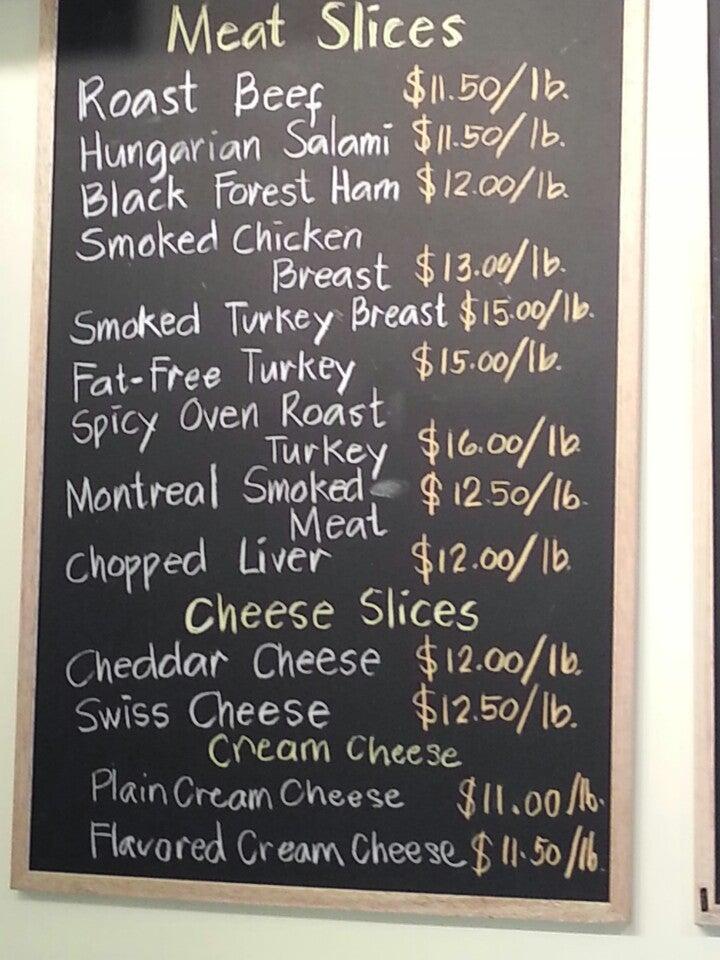 Meat Slices
Roast Beef $11.50/lb.
Hungarian Salami $11.50/lb.
Black Forest Ham $12.00/lb.
Smoked Chicken
Breast $13.00/lb.
Smoked Turkey Breast $15.00/lb.
Fat-Free Turkey $15.00/lb.
Spicy Oven Roast
Turkey $16.00/lb
Montreal Smoked $12.50/lb.
Meat
Chopped Liver $12.00/lb.
Cheese Slices
Cheddar Cheese $12.00/lb.
Swiss Cheese $12.50/lb.
Cream Cheese
Plain Cream Cheese $11.00/lb.
Flavored Cream Cheese $11.50/lb.